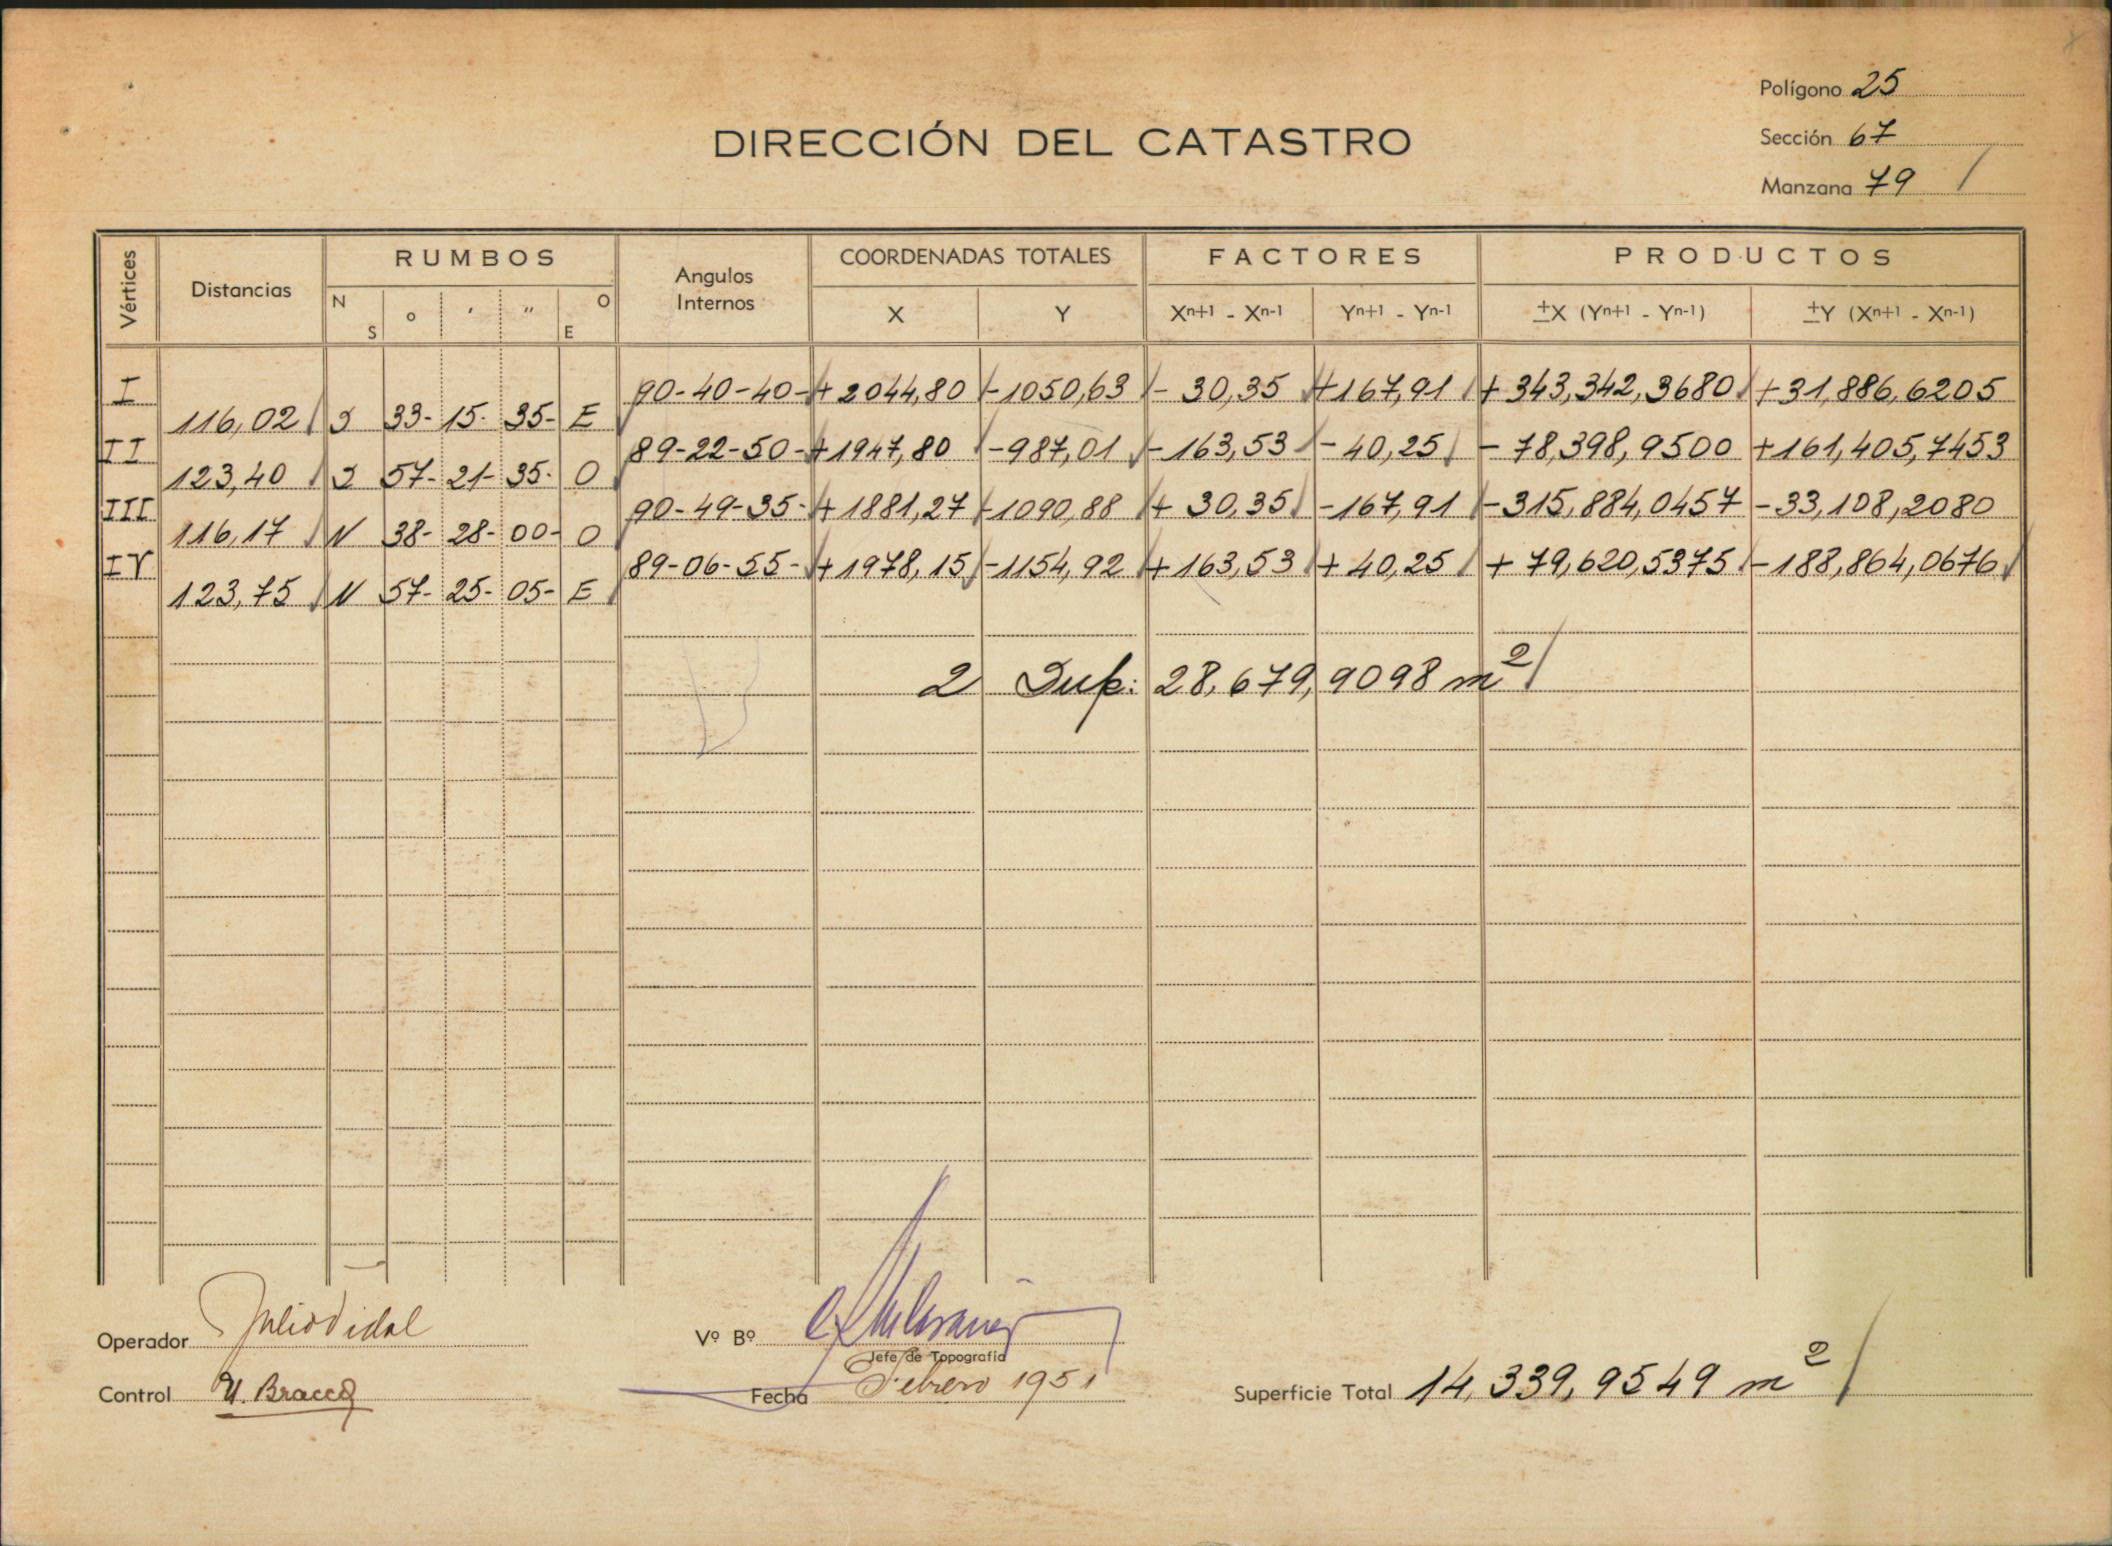 Polígono 25
DIRECCIÓN DEL CATASTRO
Sección 67
Manzana 79
Vértices Distancias RUMBOS Angulos Internos COORDENADAS TOTALES FACTORES PRODUCTOS
N S o ' " O E X Y Xn+1 - Xn-1 Yn+1 - Yn-1 ±X (Yn+1 - Yn-1) ±Y (Xn+1 - Xn-1)
I 90-40-40- +2044,80 -1050,63 - 30,35 +167,91 +343,342,3680 +31,886,6205
116,02 S 33- 15- 35- E
II 89-22-50- +1947,80 -987,01 -163,53 - 40,25 - 78,398,9500 +161,405,7453
123,40 S 57- 21- 35- O
III 90-49-35- +1881,27 -1090,88 + 30,35 -167,91 -315,884,0457 -33,108,2080
116,17 N 38- 28- 00- O
IV 89-06-55- +1978,15 -1154,92 +163,53 + 40,25 + 79,620,5375 -188,864,0676
123,75 N 57- 25- 05- E
2 Sup: 28,679,9098 m2
Operador Julio Vidal Vº Bº
Jefe de Topografía
Control U. Bracco Fecha Febrero 1951 Superficie Total 14,339,9549 m2